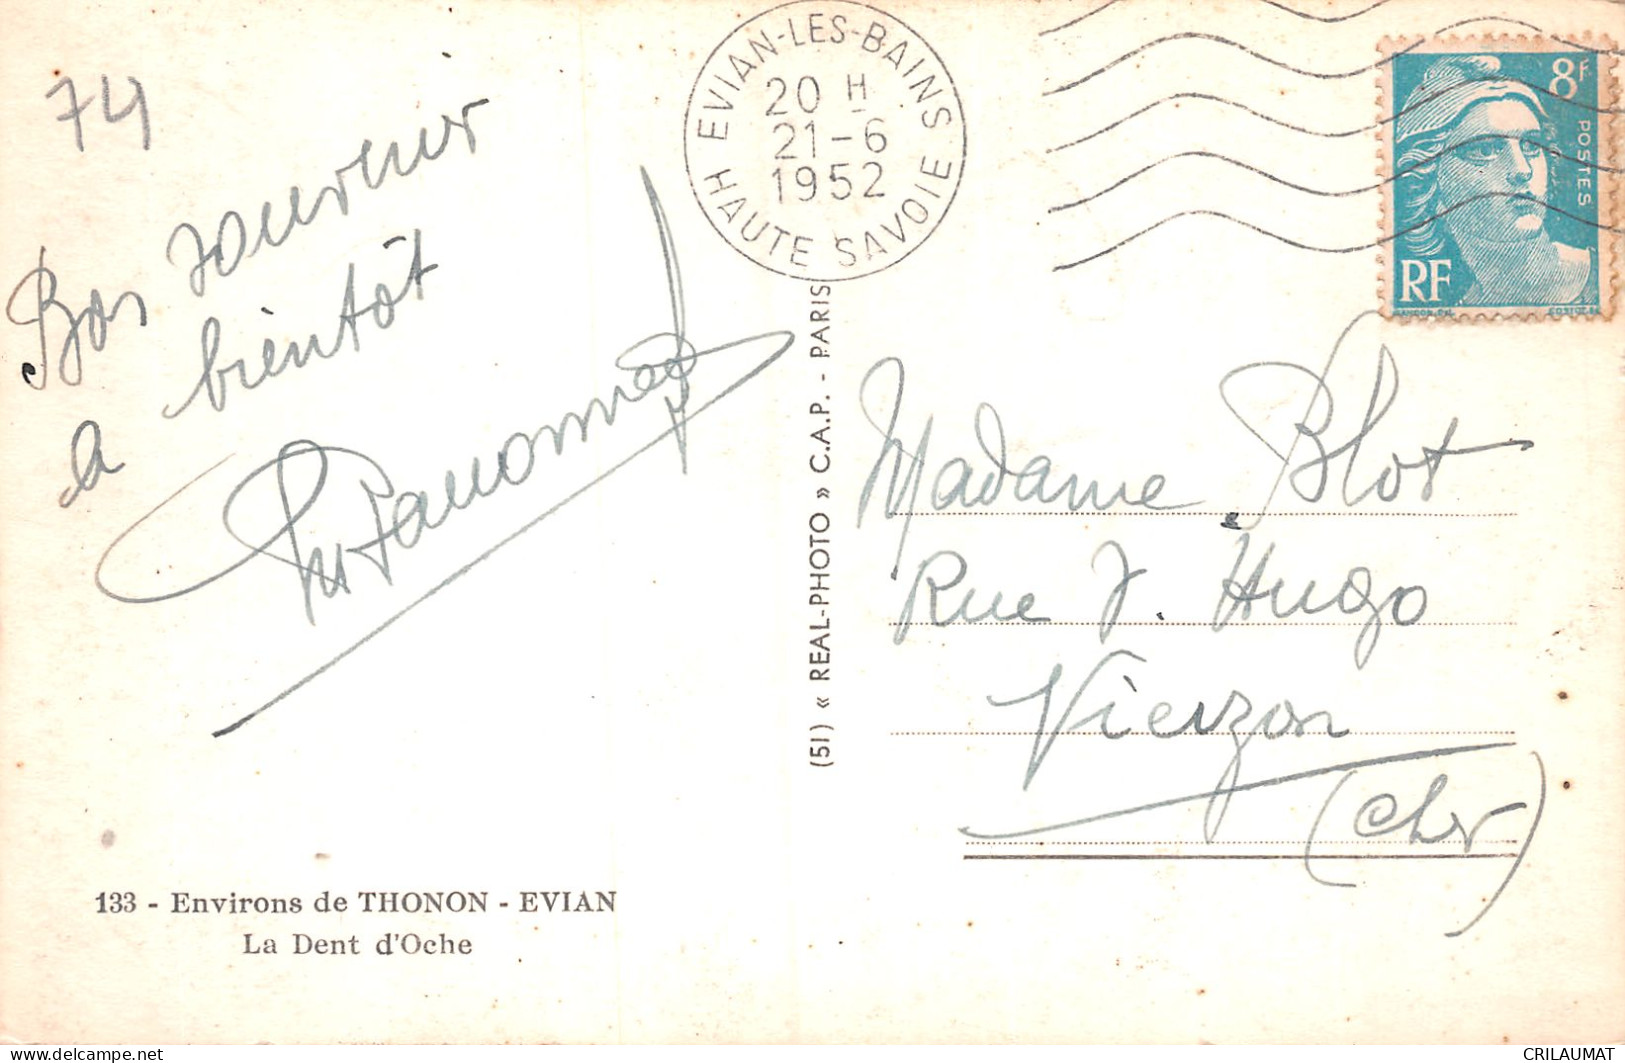 74
Bon souvenir
a bientôt
EVIAN-LES-BAINS
20 H
21-6
1952
HAUTE SAVOIE
8F
POSTES
RF
GANDON.DEL
(51) « REAL-PHOTO » C.A.P. - PARIS
Madame Blot
Rue V. Hugo
Vierzon
(Cher)
133 - Environs de THONON - EVIAN
La Dent d'Oche
CRILAUMAT